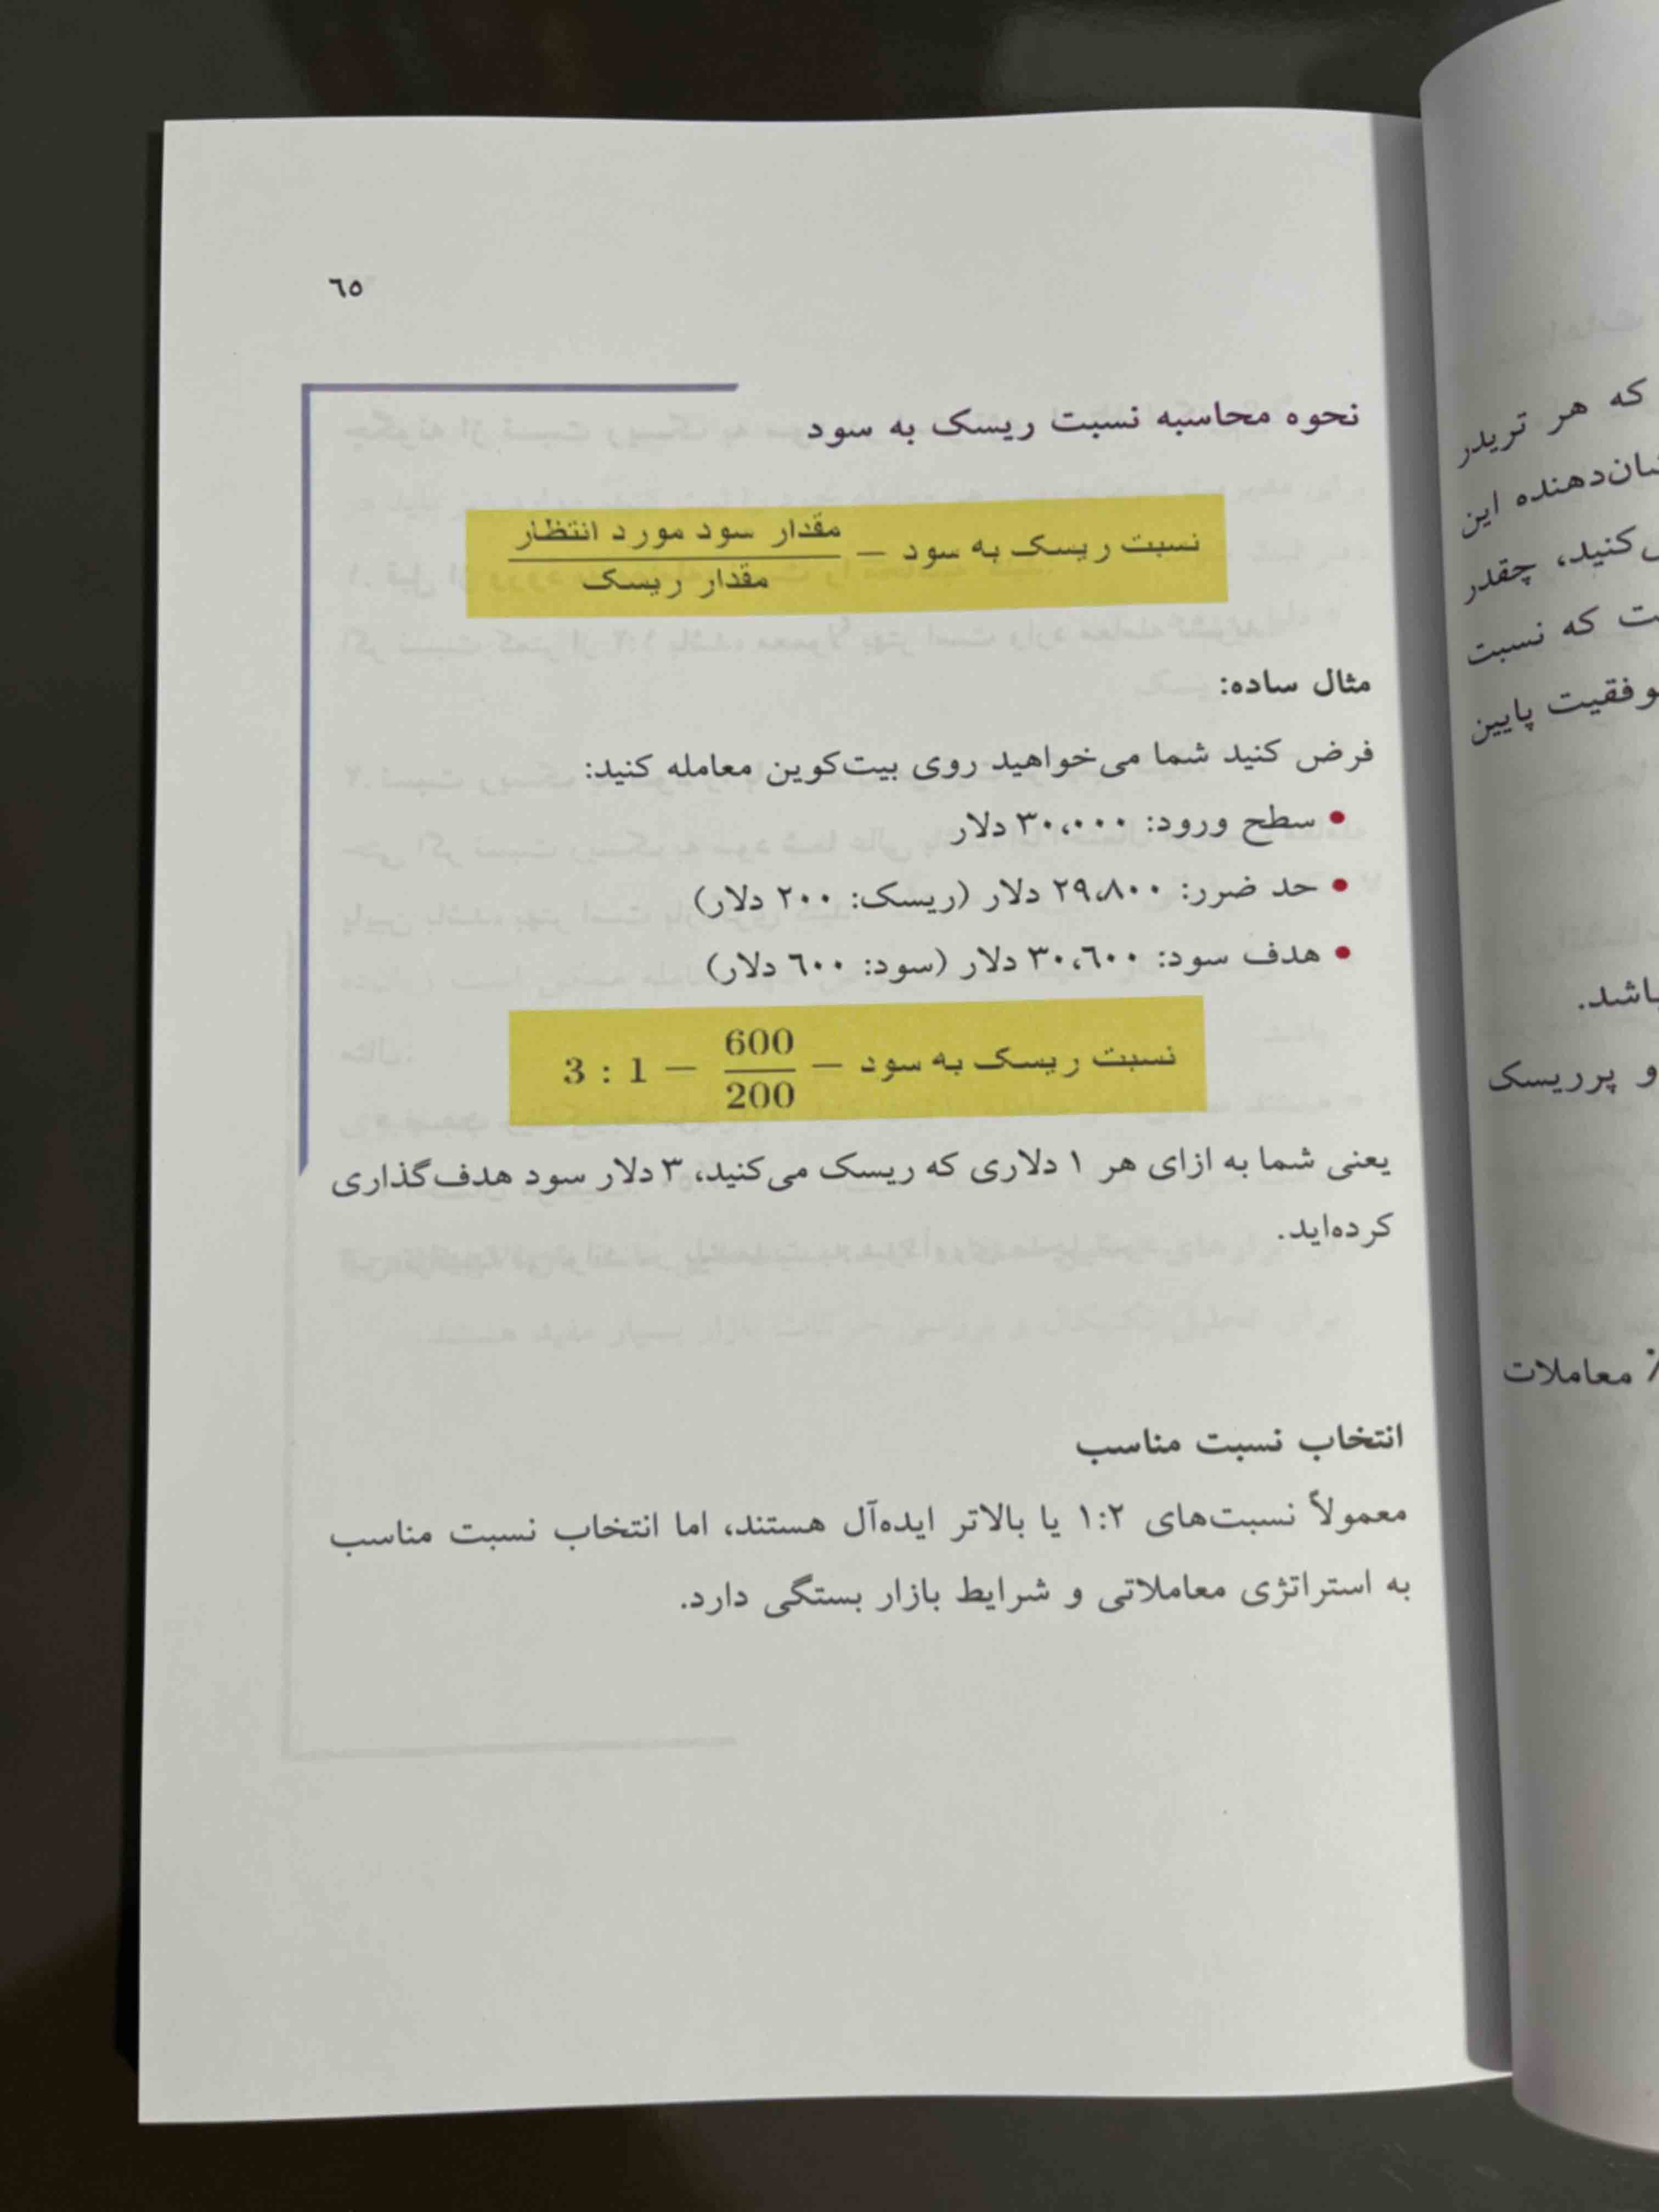 ٦٥
نحوه محاسبه نسبت ریسک به سود
نسبت ریسک به سود = مقدار سود مورد انتظار / مقدار ریسک
مثال ساده:
فرض کنید شما می‌خواهید روی بیت‌کوین معامله کنید:
• سطح ورود: ۳۰،۰۰۰ دلار
• حد ضرر: ۲۹،۸۰۰ دلار (ریسک: ۲۰۰ دلار)
• هدف سود: ۳۰،٦۰۰ دلار (سود: ٦۰۰ دلار)
نسبت ریسک به سود = 600 / 200 = 3 : 1
یعنی شما به ازای هر ۱ دلاری که ریسک می‌کنید، ۳ دلار سود هدف‌گذاری
کرده‌اید.
انتخاب نسبت مناسب
معمولاً نسبت‌های ۱:۲ یا بالاتر ایده‌آل هستند، اما انتخاب نسبت مناسب
به استراتژی معاملاتی و شرایط بازار بستگی دارد.
که هر تریدر
این
کنید، چقدر
که نسبت
پایین
و پرریسک
معاملات